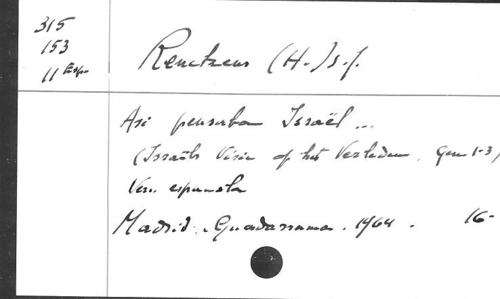 315
153
11 Esp.
Renckens (H.) s.j.
Asi pensaba Israël ...
(Israëls Visie op het Verleden. Gen 1-3)
Ver. española
Madrid. Guadarrama. 1964. 16-